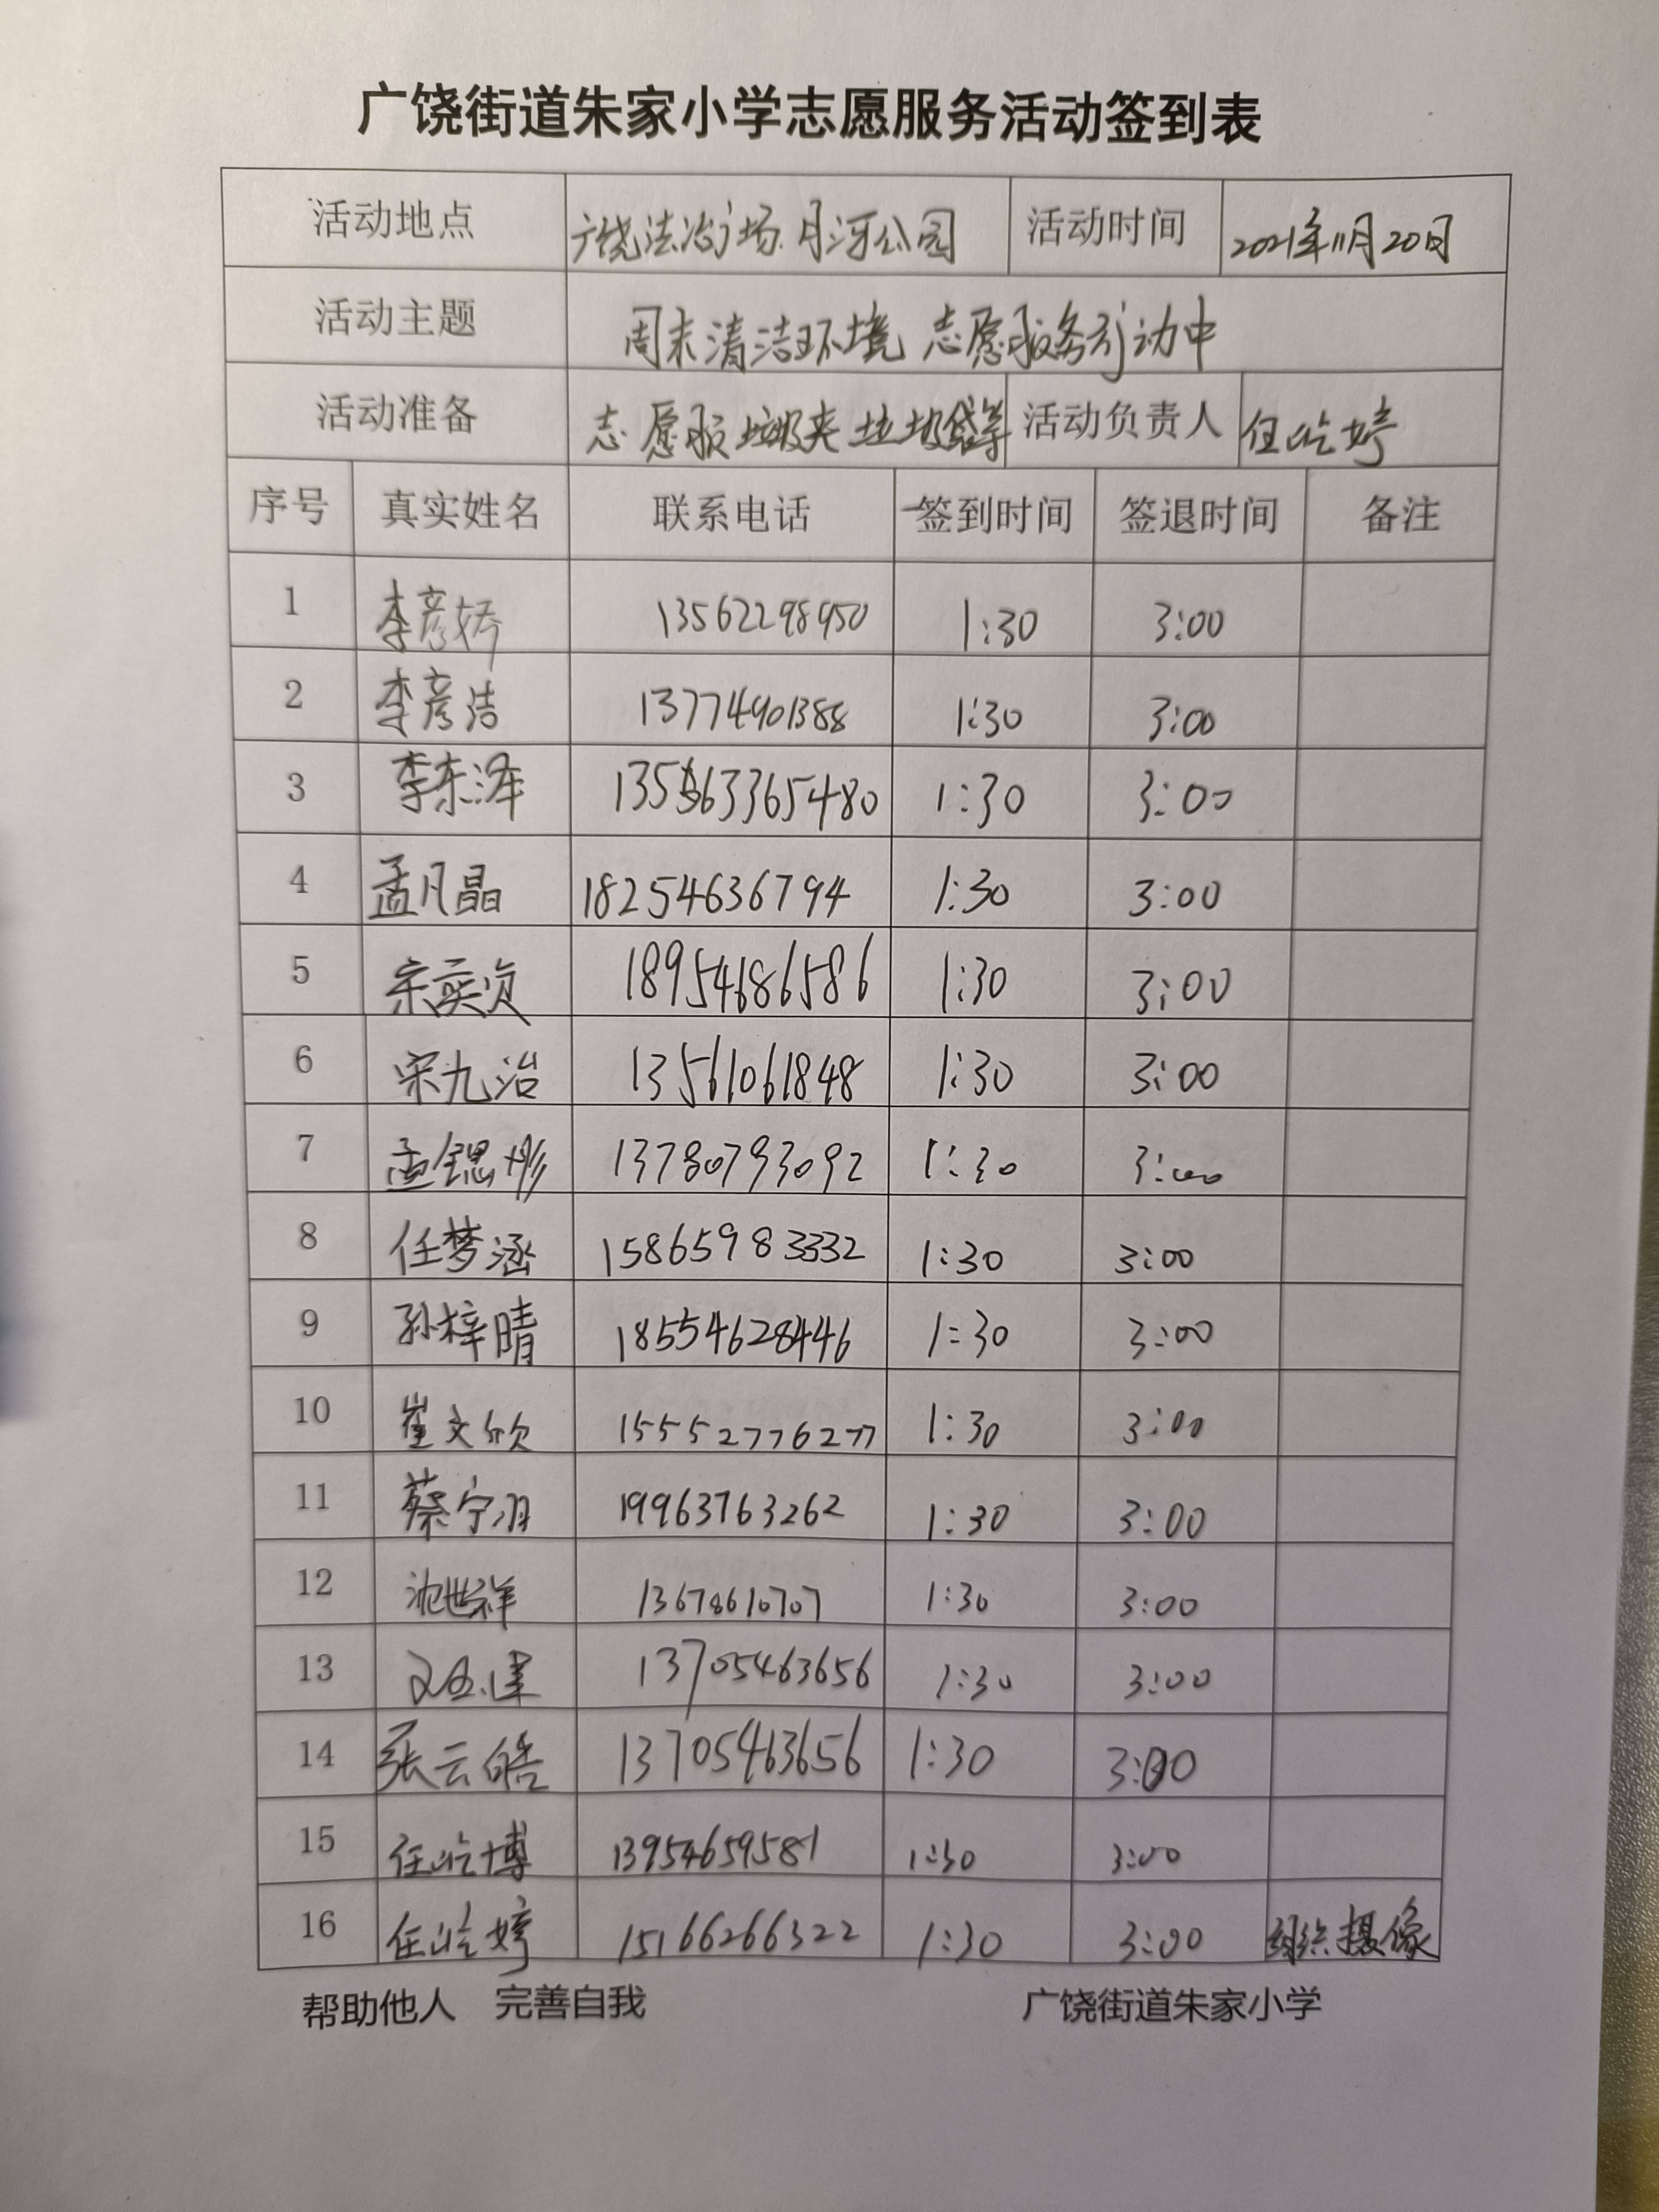 广饶街道朱家小学志愿服务活动签到表
活动地点 广饶法治广场.月河公园 活动时间 2021年11月20日
活动主题 周末清洁环境 志愿服务行动中
活动准备 志愿服 垃圾夹 垃圾袋等 活动负责人 任屹婷
序号 真实姓名 联系电话 签到时间 签退时间 备注
1 李彦娇 13562298950 1:30 3:00
2 李彦洁 13774901388 1:30 3:00
3 李东泽 13563365480 1:30 3:00
4 孟凡晶 18254636794 1:30 3:00
5 宋奕贞 18954686586 1:30 3:00
6 宋九治 13561061848 1:30 3:00
7 孟锶彤 13780793092 1:30 3:00
8 任梦涵 15865983332 1:30 3:00
9 孙梓晴 18554628446 1:30 3:00
10 崔文欣 15552776277 1:30 3:00
11 蔡宁羽 19963763262 1:30 3:00
12 沈世祥 13678610707 1:30 3:00
13 13705463656 1:30 3:00
14 张云皓 13705463656 1:30 3:00
15 任屹博 13954659581 1:30 3:00
16 任屹婷 15166266322 1:30 3:00 组织摄像
帮助他人 完善自我 广饶街道朱家小学